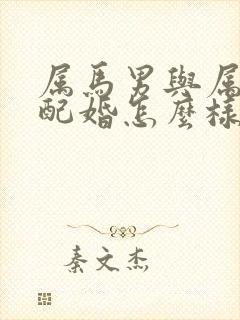 属馬男與属
配婚怎麼樣
秦文杰